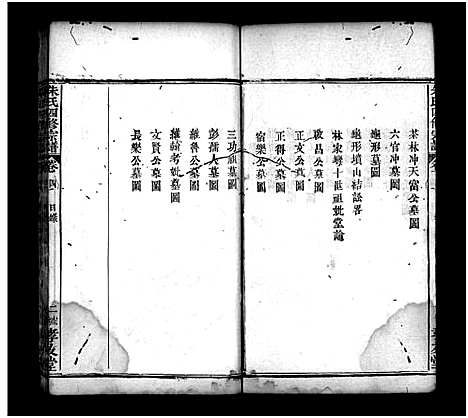 茶林冲天富公墓圖
六官冲墓圖
龜形墓圖
龜形墳山結訟畧
林家塝十世祖妣堂論
啟昌公墓圖
正文公墓圖
正得公墓圖
宿樂公墓圖
三功祖墓圖
彭孺人墓圖
維魯公墓圖
維翰考妣墓圖
文賢公墓圖
長樂公墓圖
朱氏四修宗譜
卷四
目錄
二
孝友堂